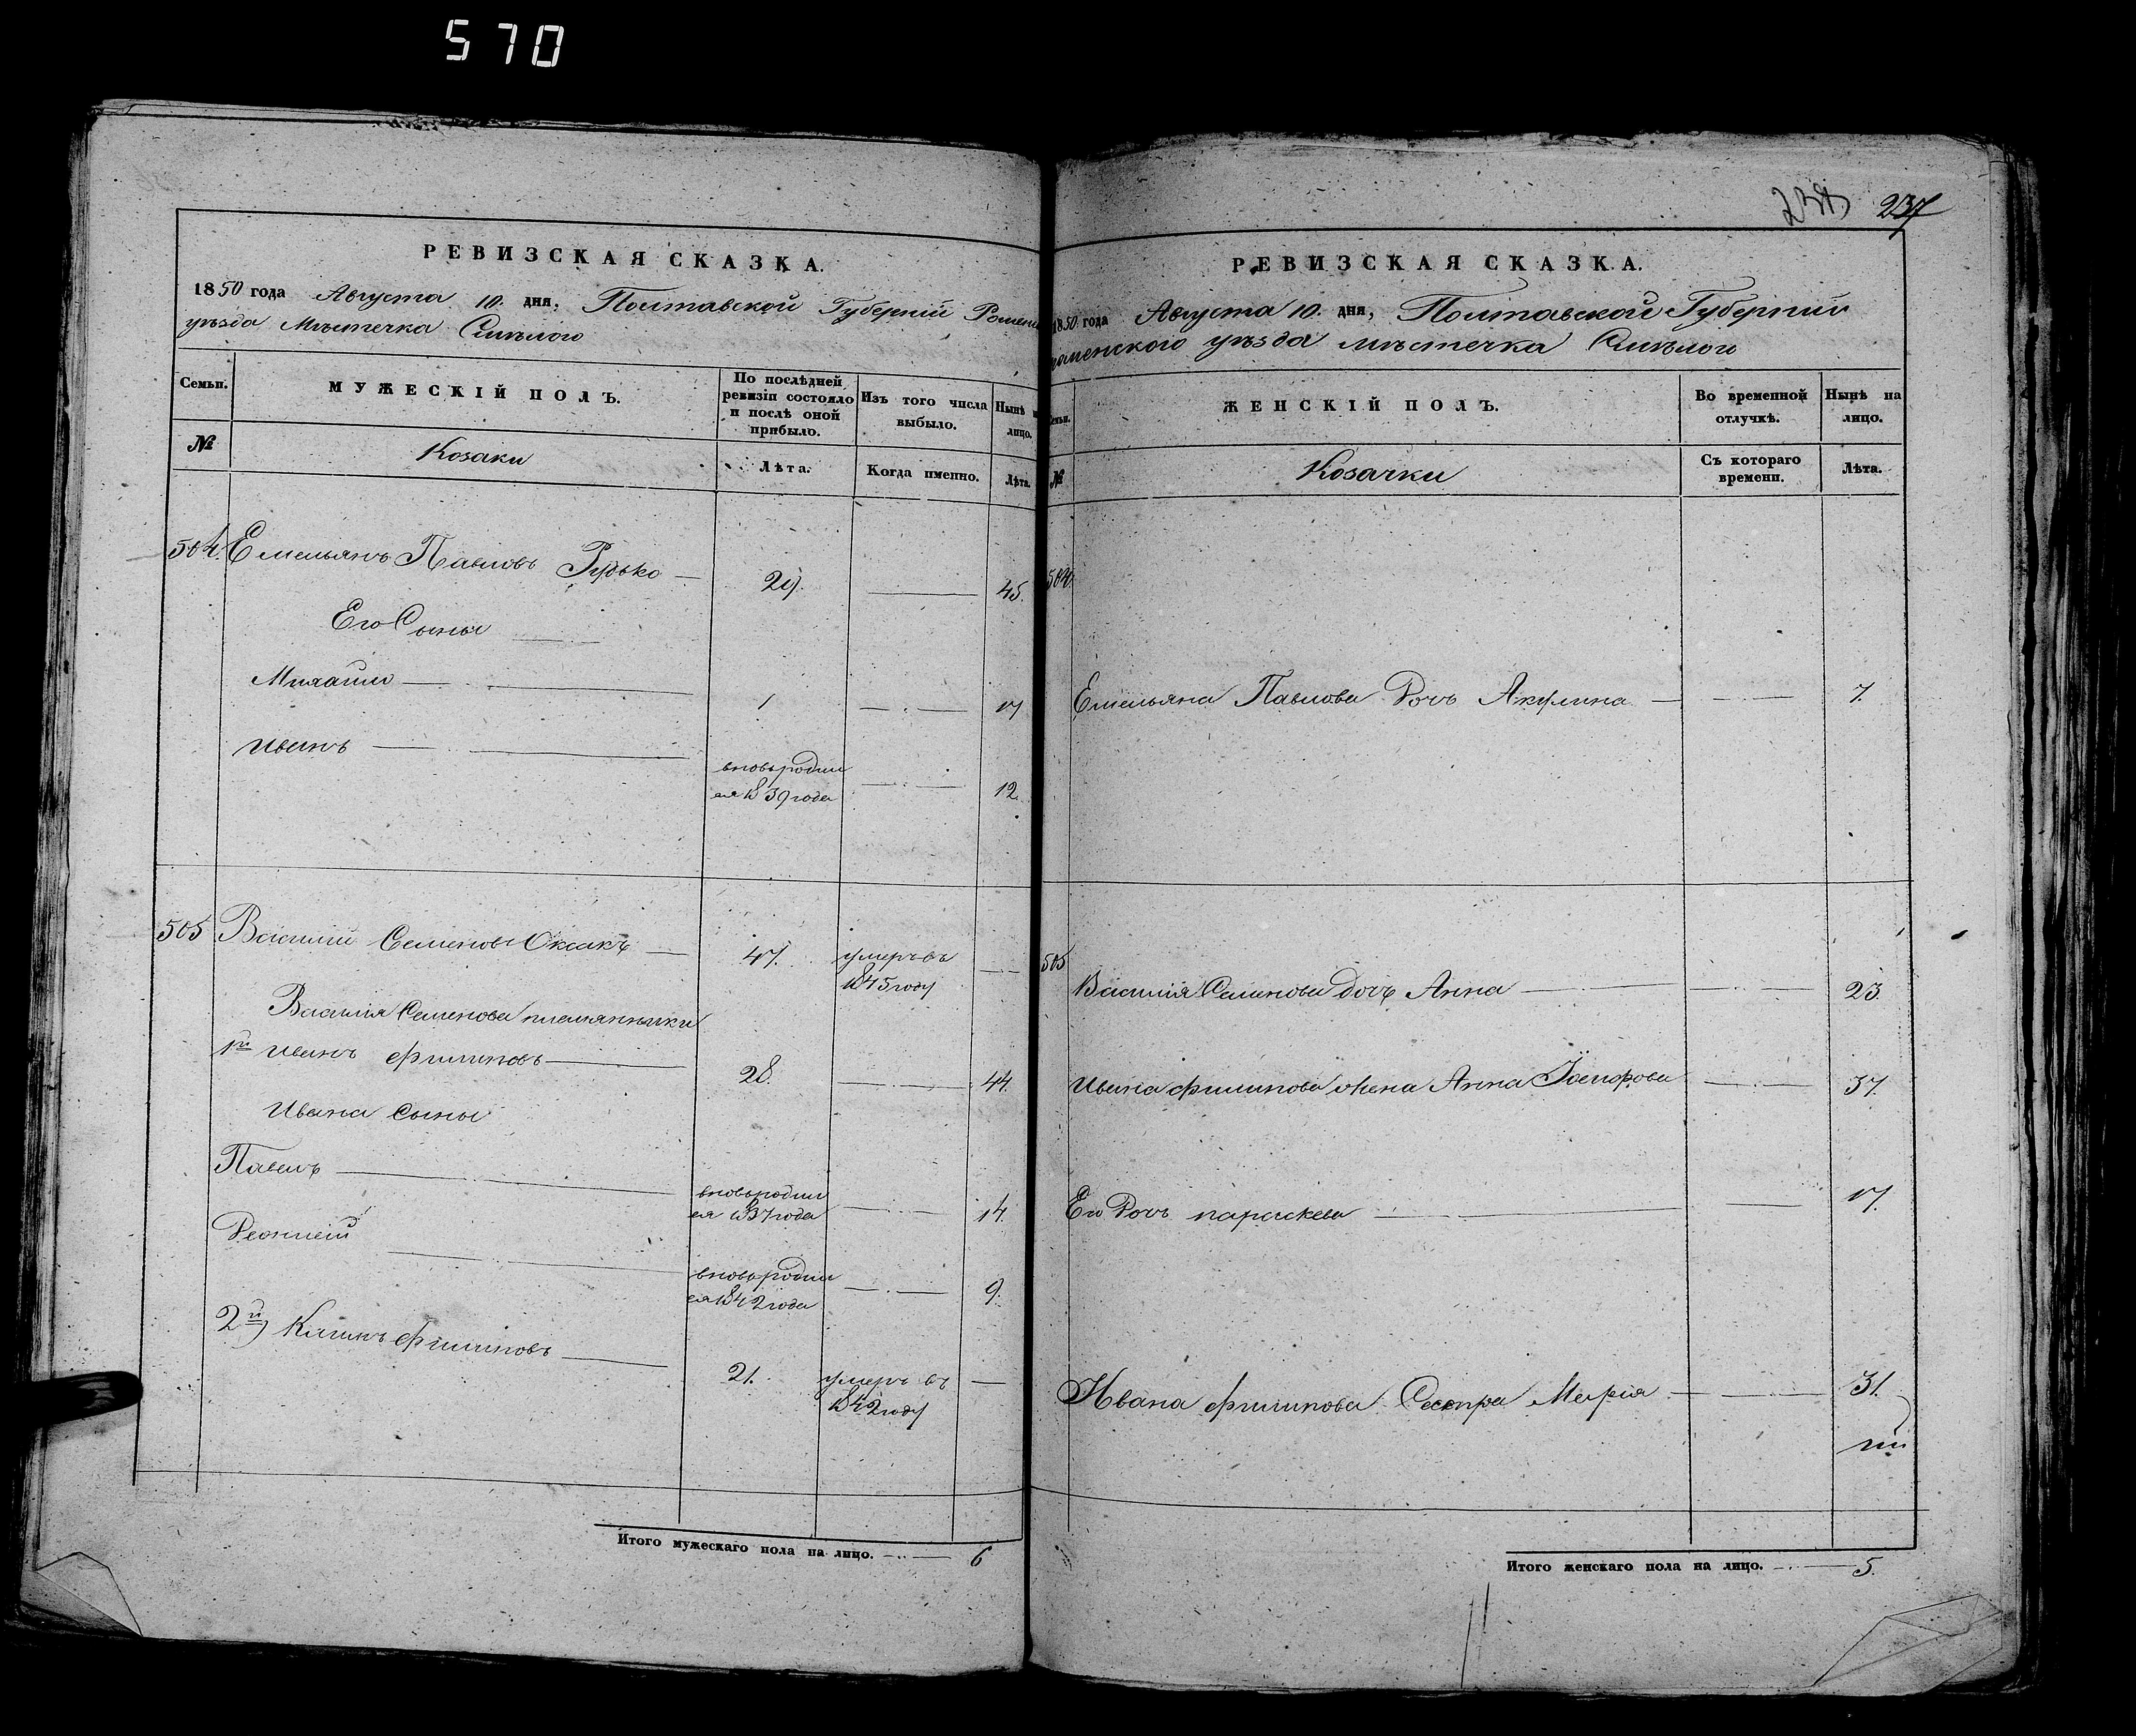 570
РЕВИЗСКАЯ СКАЗКА.
1850 года Августа 10. дня, Полтавской Губерніи Ромен
уѣзда Мѣстечка Смѣлого
Семьи. МУЖЕСКІЙ ПОЛЪ. По послѣдней ревизіи состояло и послѣ оной прибыло. Изъ того числа выбыло. Нынѣ лицо.
№ Козаки Лѣта. Когда именно. Лѣта.
504. Емельянъ Павловъ Рудько 29. 45.
Его Сыны
Михаилъ 1 17
Иванъ
вновь родил
ся 1839 года 12.
505 Василий Семеновъ Оксакъ 47. умеръ въ
1845 году
Василія Семенова племянники
1й Иванъ Филиповъ 28. 44.
Ивана Сыны
Павелъ
вновь родил
ся 1837 года 14.
Леонтей
вновь родил
ся 1842 года 9.
2й) Климъ Филиповъ 21. умеръ въ
1842 году
Итого мужескаго пола на лицо. 6
237
РЕВИЗСКАЯ СКАЗКА.
1850 года Августа 10. дня, Полтавской Губерніи
роменского уѣзда мѣстечка Смѣлого
Семьи. ЖЕНСКІЙ ПОЛЪ. Во временной отлучкѣ. Нынѣ на лицо.
№ Козачки Съ котораго времени. Лѣта.
504.
Емельяна Павлова Дочь Акулина 7.
505
Василія Семенова дочь Анна 23.
Ивана Филипова жена Анна 37.
Его Дочь параскева 17.
Ивана Филипова Сестра Марія 31.
Итого женскаго пола на лицо. 5.